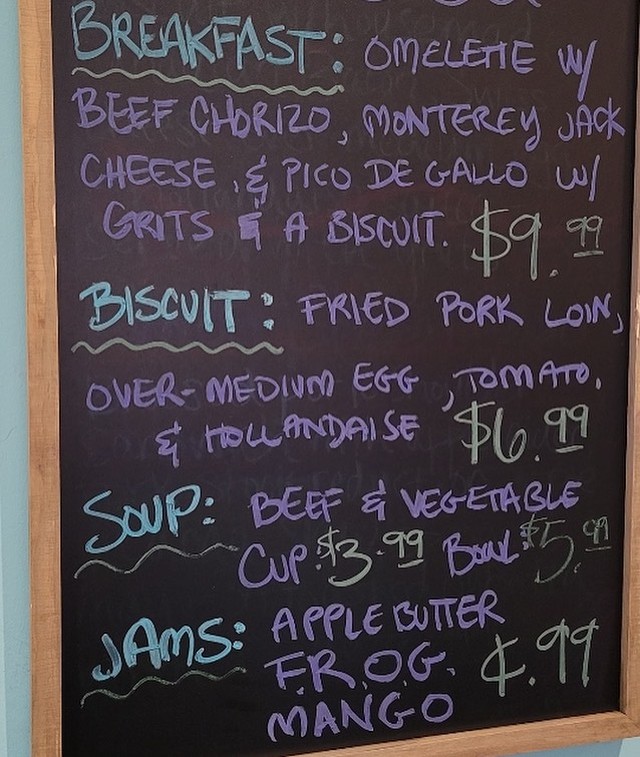 BREAKFAST: OMELETTE W/
BEEF CHORIZO, MONTEREY JACK
CHEESE, & PICO DE GALLO W/
GRITS & A BISCUIT. $9.99
BISCUIT: FRIED PORK LOIN,
OVER-MEDIUM EGG, TOMATO,
& HOLLANDAISE $6.99
SOUP: BEEF & VEGETABLE
CUP: $3.99 BOWL: $5.99
JAMS: APPLE BUTTER
F.R.O.G. ¢.99
MANGO